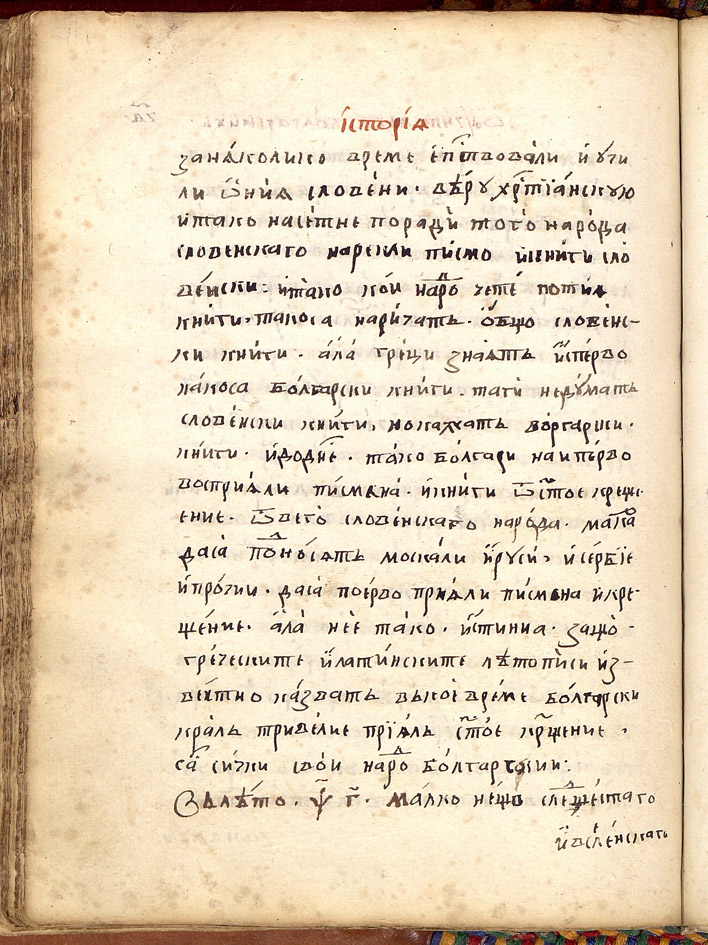 їсторїѧ
занѧколико време епⷭ҇твовали и учи
ли ѿ ниѧ словени. вѣру хрⷭ҇тїанскую
и тако насетне поради того народа
словенскаго нарекли писмо и книги сло
венски: и тако кои наро чете потиѧ
книги, такоса наричатъ. обшо словенс-
ки книги. ала греци знаѧтъ исперво
какоса болгарски книги. таги недуматъ
словенски книги, но кажатъ воргарики.
книги. и до днⷭ҇е. тако болгари наиперво
восприѧли писмена. и книги ѿ стⷪ҇ое креще
ение. ѿ вего словенскаго народа.
даса поносѧтъ москали и руси, и сербїе
и прочии. даса поерво приѧли писмена и кре-
щение. ала нее тако. истиниа. защо-
греческите и латинските лѣтописи из-
вестно казватъ вь кое време болгарски
краль тривелие прїѧль стⷪ҇ое крⷳ҇щение,
са сички свои наро болгарскии:
Вь лѣто. ѱ҃ г҃. малко нещо следшестаго
и вселенскаго